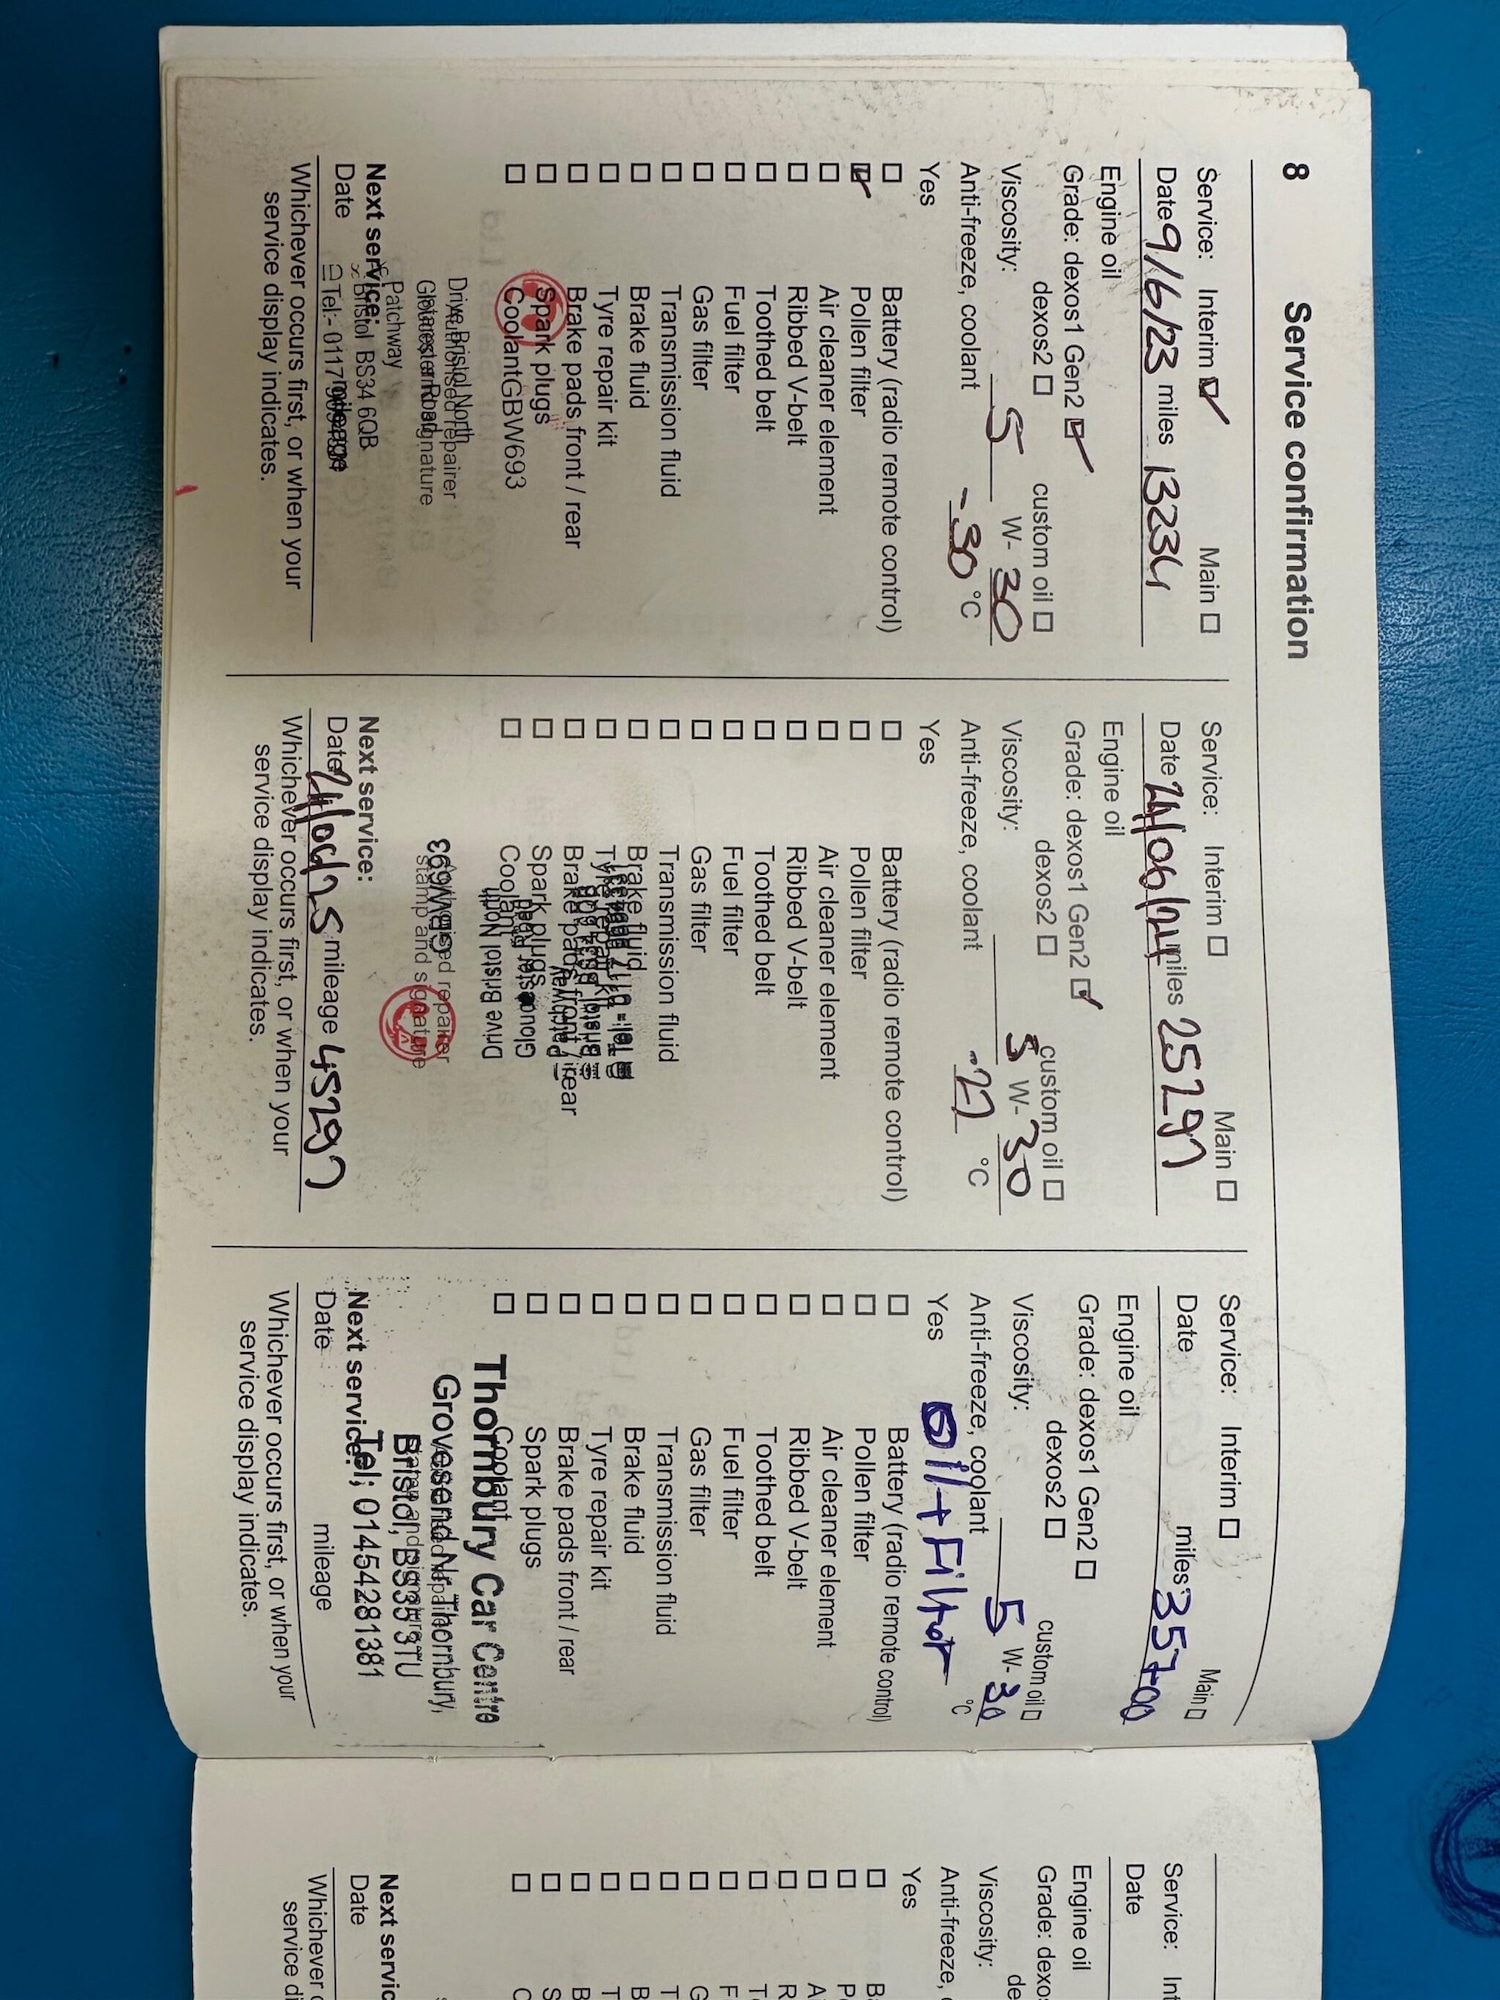 8 Service confirmation
Service: Interim Main
Date 9/6/23 miles 13234
Engine oil
Grade: dexos1 Gen2
dexos2 custom oil
Viscosity: 5 W- 30
Anti-freeze, coolant -30 °C
Yes
Battery (radio remote control)
Pollen filter
Air cleaner element
Ribbed V-belt
Toothed belt
Fuel filter
Gas filter
Transmission fluid
Brake fluid
Tyre repair kit
Brake pads front / rear
Spark plugs
Coolant GBW693
Drive Bristol North
Authorised repairer
Gloucester Road
stamp and signature
Patchway
Bristol BS34 6QB
Next service:
Tel:- 0117
Date mileage
Whichever occurs first, or when your
service display indicates.
Service: Interim Main
Date 24/06/24 miles 25297
Engine oil
Grade: dexos1 Gen2
dexos2 custom oil
Viscosity: 5 W- 30
Anti-freeze, coolant -27 °C
Yes
Battery (radio remote control)
Pollen filter
Air cleaner element
Ribbed V-belt
Toothed belt
Fuel filter
Gas filter
Transmission fluid
Brake fluid
Tyre repair kit
Brake pads front / rear
Spark plugs
Coolant
Drive Bristol North
Gloucester Road
Patchway
GBW693
Authorised repairer
stamp and signature
Next service:
Date mileage 45297
Whichever occurs first, or when your
service display indicates.
Service: Interim Main
Date miles 35700
Engine oil
Grade: dexos1 Gen2
dexos2 custom oil
Viscosity: 5 W- 30
Anti-freeze, coolant °C
Yes Oil + Filter
Battery (radio remote control)
Pollen filter
Air cleaner element
Ribbed V-belt
Toothed belt
Fuel filter
Gas filter
Transmission fluid
Brake fluid
Tyre repair kit
Brake pads front / rear
Spark plugs
Coolant
Thornbury Car Centre
Grovesend Nr Thornbury,
Bristol, BS35 3TU
Tel; 01454281381
Next service:
Date mileage
Whichever occurs first, or when your
service display indicates.
Service: Int
Date
Engine oil
Grade: dexos
de
Viscosity:
Anti-freeze,
Yes
Next servic
Date
Whichever
service di